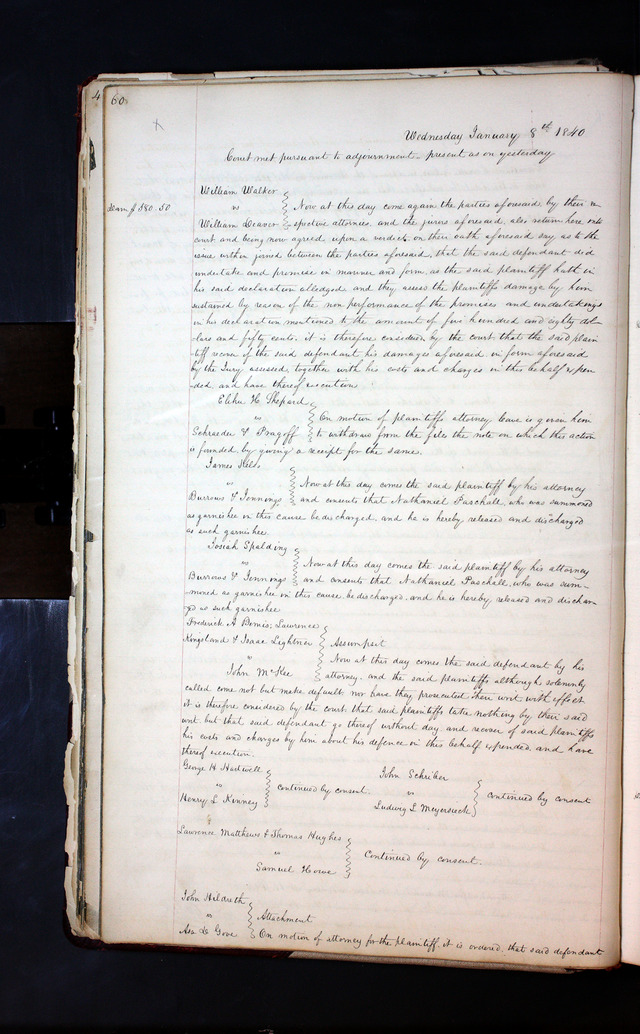 4 60
Wednesday January 8th 1840
Court met pursuant to adjournment - present as on yesterday
William Walker
vs
William Deaver
Dam $ 580.50
Now at this day come again the parties aforesaid by their re-
spective attornies and the jurors aforesaid also return here into
court and being now agreed upon a verdict on their oath aforesaid say as to the
issue within joined between the parties aforesaid, that the said defendant did
undertake and promise in manner and form as the said plaintiff hath in
his said declaration alledged and they assess the plaintiff damage by him
sustained by reason of the non performance of the promises and undertakings
in his declaration mentioned to the amount of five hundred and eighty dol-
lars and fifty cents, it is therefore considered by the court that the said plain
tiff recover of the said defendant his damages aforesaid in form aforesaid
by the Jury assessed, together with his costs and charges in this behalf expen
ded, and have thereof execution
Elihu H. Shepard
vs
Schraeder & Pragoff
On motion of plaintiffs attorney leave is given him
to withdraw from the files the note on which this action
is founded by giving a receipt for the same.
James
vs
Burrows & Jennings
Now at this day comes the said plaintiff by his attorney
and consents that Nathaniel Paschall, who was summoned
as garnishee in this cause be discharged, and he is hereby released and discharged
as such garnishee.
Josiah Spalding
vs
Burrows & Jennings
Now at this day comes the said plaintiff by his attorney
and consents that Nathaniel Paschall, who was sum-
-moned as garnishee in this cause, be discharged, and he is hereby released and dischar
ged as such garnishee
Frederick A Bemis, Lawrence
Kingsland & Isaac Lightner
vs
John McKee
Assumpsit
Now at this day comes the said defendant by his
attorney, and the said plaintiffs although solemnly
called come not but make default, nor have they prosecuted their writ with effect
it is therefore considered by the court that said plaintiffs take nothing by their said
writ but that said defendant go thereof without day and recover of said plaintiffs
his costs and charges by him about his defence in this behalf expended, and have
thereof execution.
George H Hartwell
vs
Henry L Kinney
continued by consent.
John Schriber
vs
Ludwig L Meyersieck
continued by consent
Lawrence Matthews & Thomas Hughes
vs
Samuel Howe
Continued by consent.
John Hildreth
vs
Asa D Gove
Attachment
On motion of attorney for the plaintiff. it is ordered, that said defendant